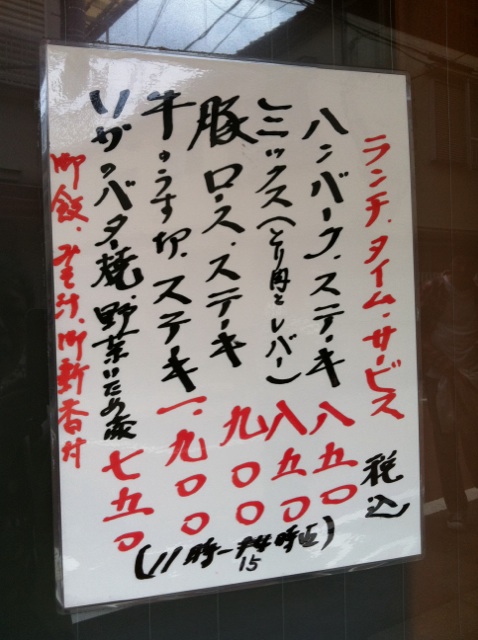 ランチ.タイム.サービス 税込
ハンバーグ.ステーキ 八五〇
ミックス(とり肉とレバー) 八五〇
豚.ロース.ステーキ 九〇〇
牛のうす切.ステーキ 一.九〇〇
のバター焼.野菜いため 七五〇
御飯、みそ汁、御新香付
(11時一 時
15